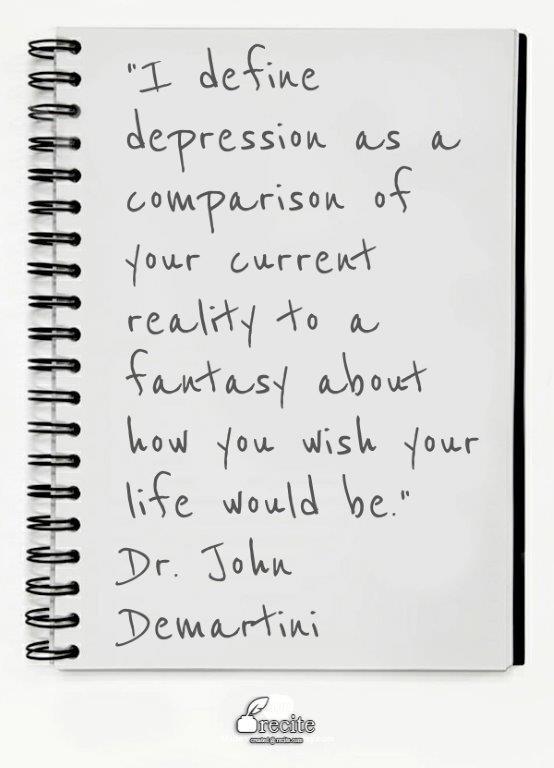 "I define
depression as a
comparison of
your current
reality to a
fantasy about
how you wish your
life would be."
Dr. John
Demartini
recite
created @ recite.com